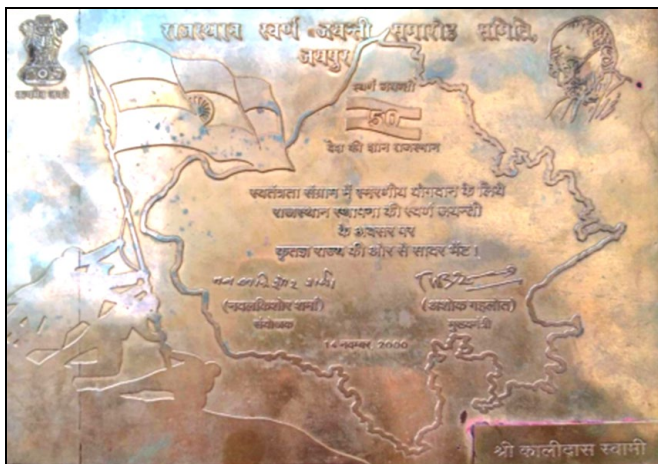 राजस्थान स्वर्ण जयन्ती समारोह समिति,
जयपुर
सत्यमेव जयते
स्वर्ण जयन्ती
50
देश की शान राजस्थान
स्वतंत्रता संग्राम में स्मरणीय योगदान के लिये
राजस्थान स्थापना की स्वर्ण जयन्ती
के अवसर पर
कृतज्ञ राज्य की ओर से सादर भेंट।
(नवलकिशोर शर्मा)
संयोजक
(अशोक गहलोत)
मुख्यमंत्री
14 नवम्बर, 2000
श्री कालीदास स्वामी